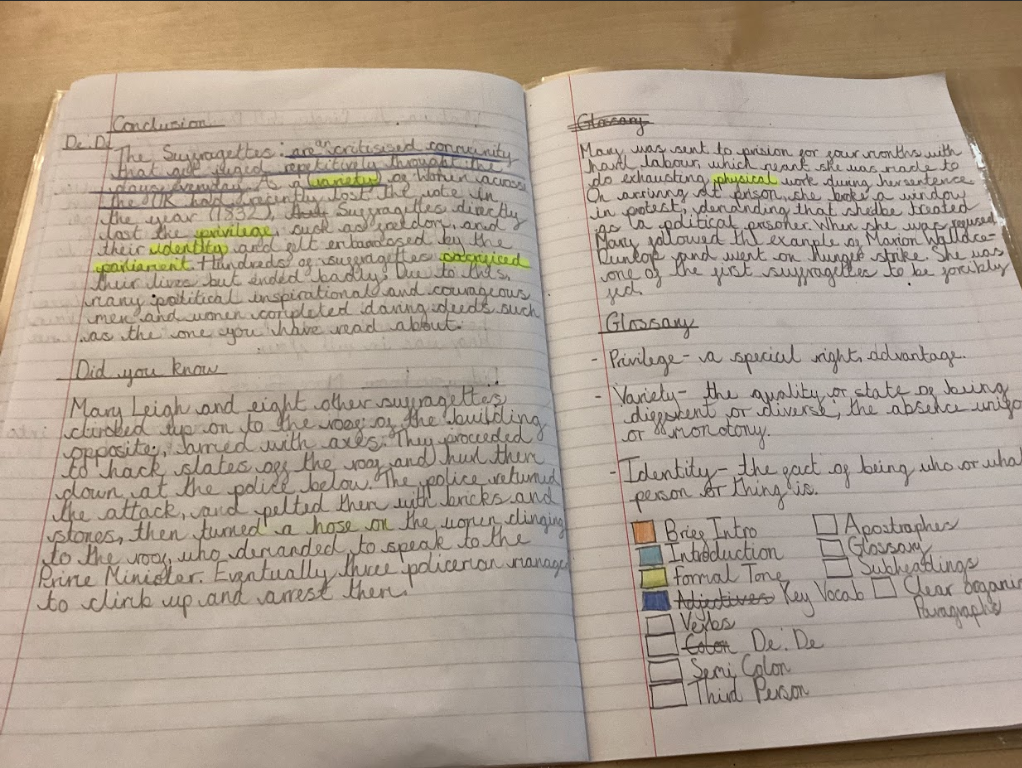 Conclusion
De: De
The Suffragettes: are a critisised community
that got judged repetitively throught the
days everyday. As a variety of women across
the UK had recently lost the vote in
the year (1832), Suffragettes directly
lost the privilege, such as freedom, and
their identity and felt embarlosed by the
parliament. Hundreds of suffragettes sacrificed
their lives but ended badly. Due to this,
many political inspirational and courageous
men and women completed daring deeds such
as the one you have read about.
Did you know
Mary Leigh and eight other suffragettes
climbed up on to the roof of the building
opposite, armed with axes. They proceeded
to hack slates off the roof and hurl them
down at the police below. The police returned
the attack, and pelted them with bricks and
stones, then turned a hose on the women clinging
to the roof, who demanded to speak to the
Prime Minister. Eventually three policemen manage
to climb up and arrest them.
Glossary
Mary was sent to prision for four months with
hard labour, which meant she was made to
do exhausting physical work during her sentence
On arriving at prison, she broke a window
in protest, demanding that she be treated
as a political prisoner. When she was refused
Mary followed the example of Marion Wallace-
Dunlop and went on hunger strike. She was
one of the first suffragettes to be forcibly
fed.
Glossary
- Privilege - a special right, advantage.
- Variety - the quality or state of being
different or diverse, the absence unifo
or monotony.
- Identity - the fact of being who or what
person or thing is.
Brief Intro
Introduction
Formal Tone
Adjectives Key Vocab
Verbs
Colon De: De
Semi Colon
Third Person
Apostraphes
Glossary
Subheadings
Clear organi
Paragraphs